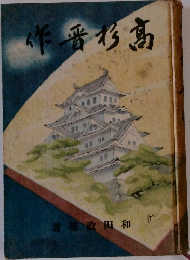 高杉晋作
和田政雄著